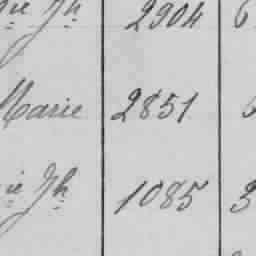 Jh 2904 6
Marie 2851
ie Jh 1085 3